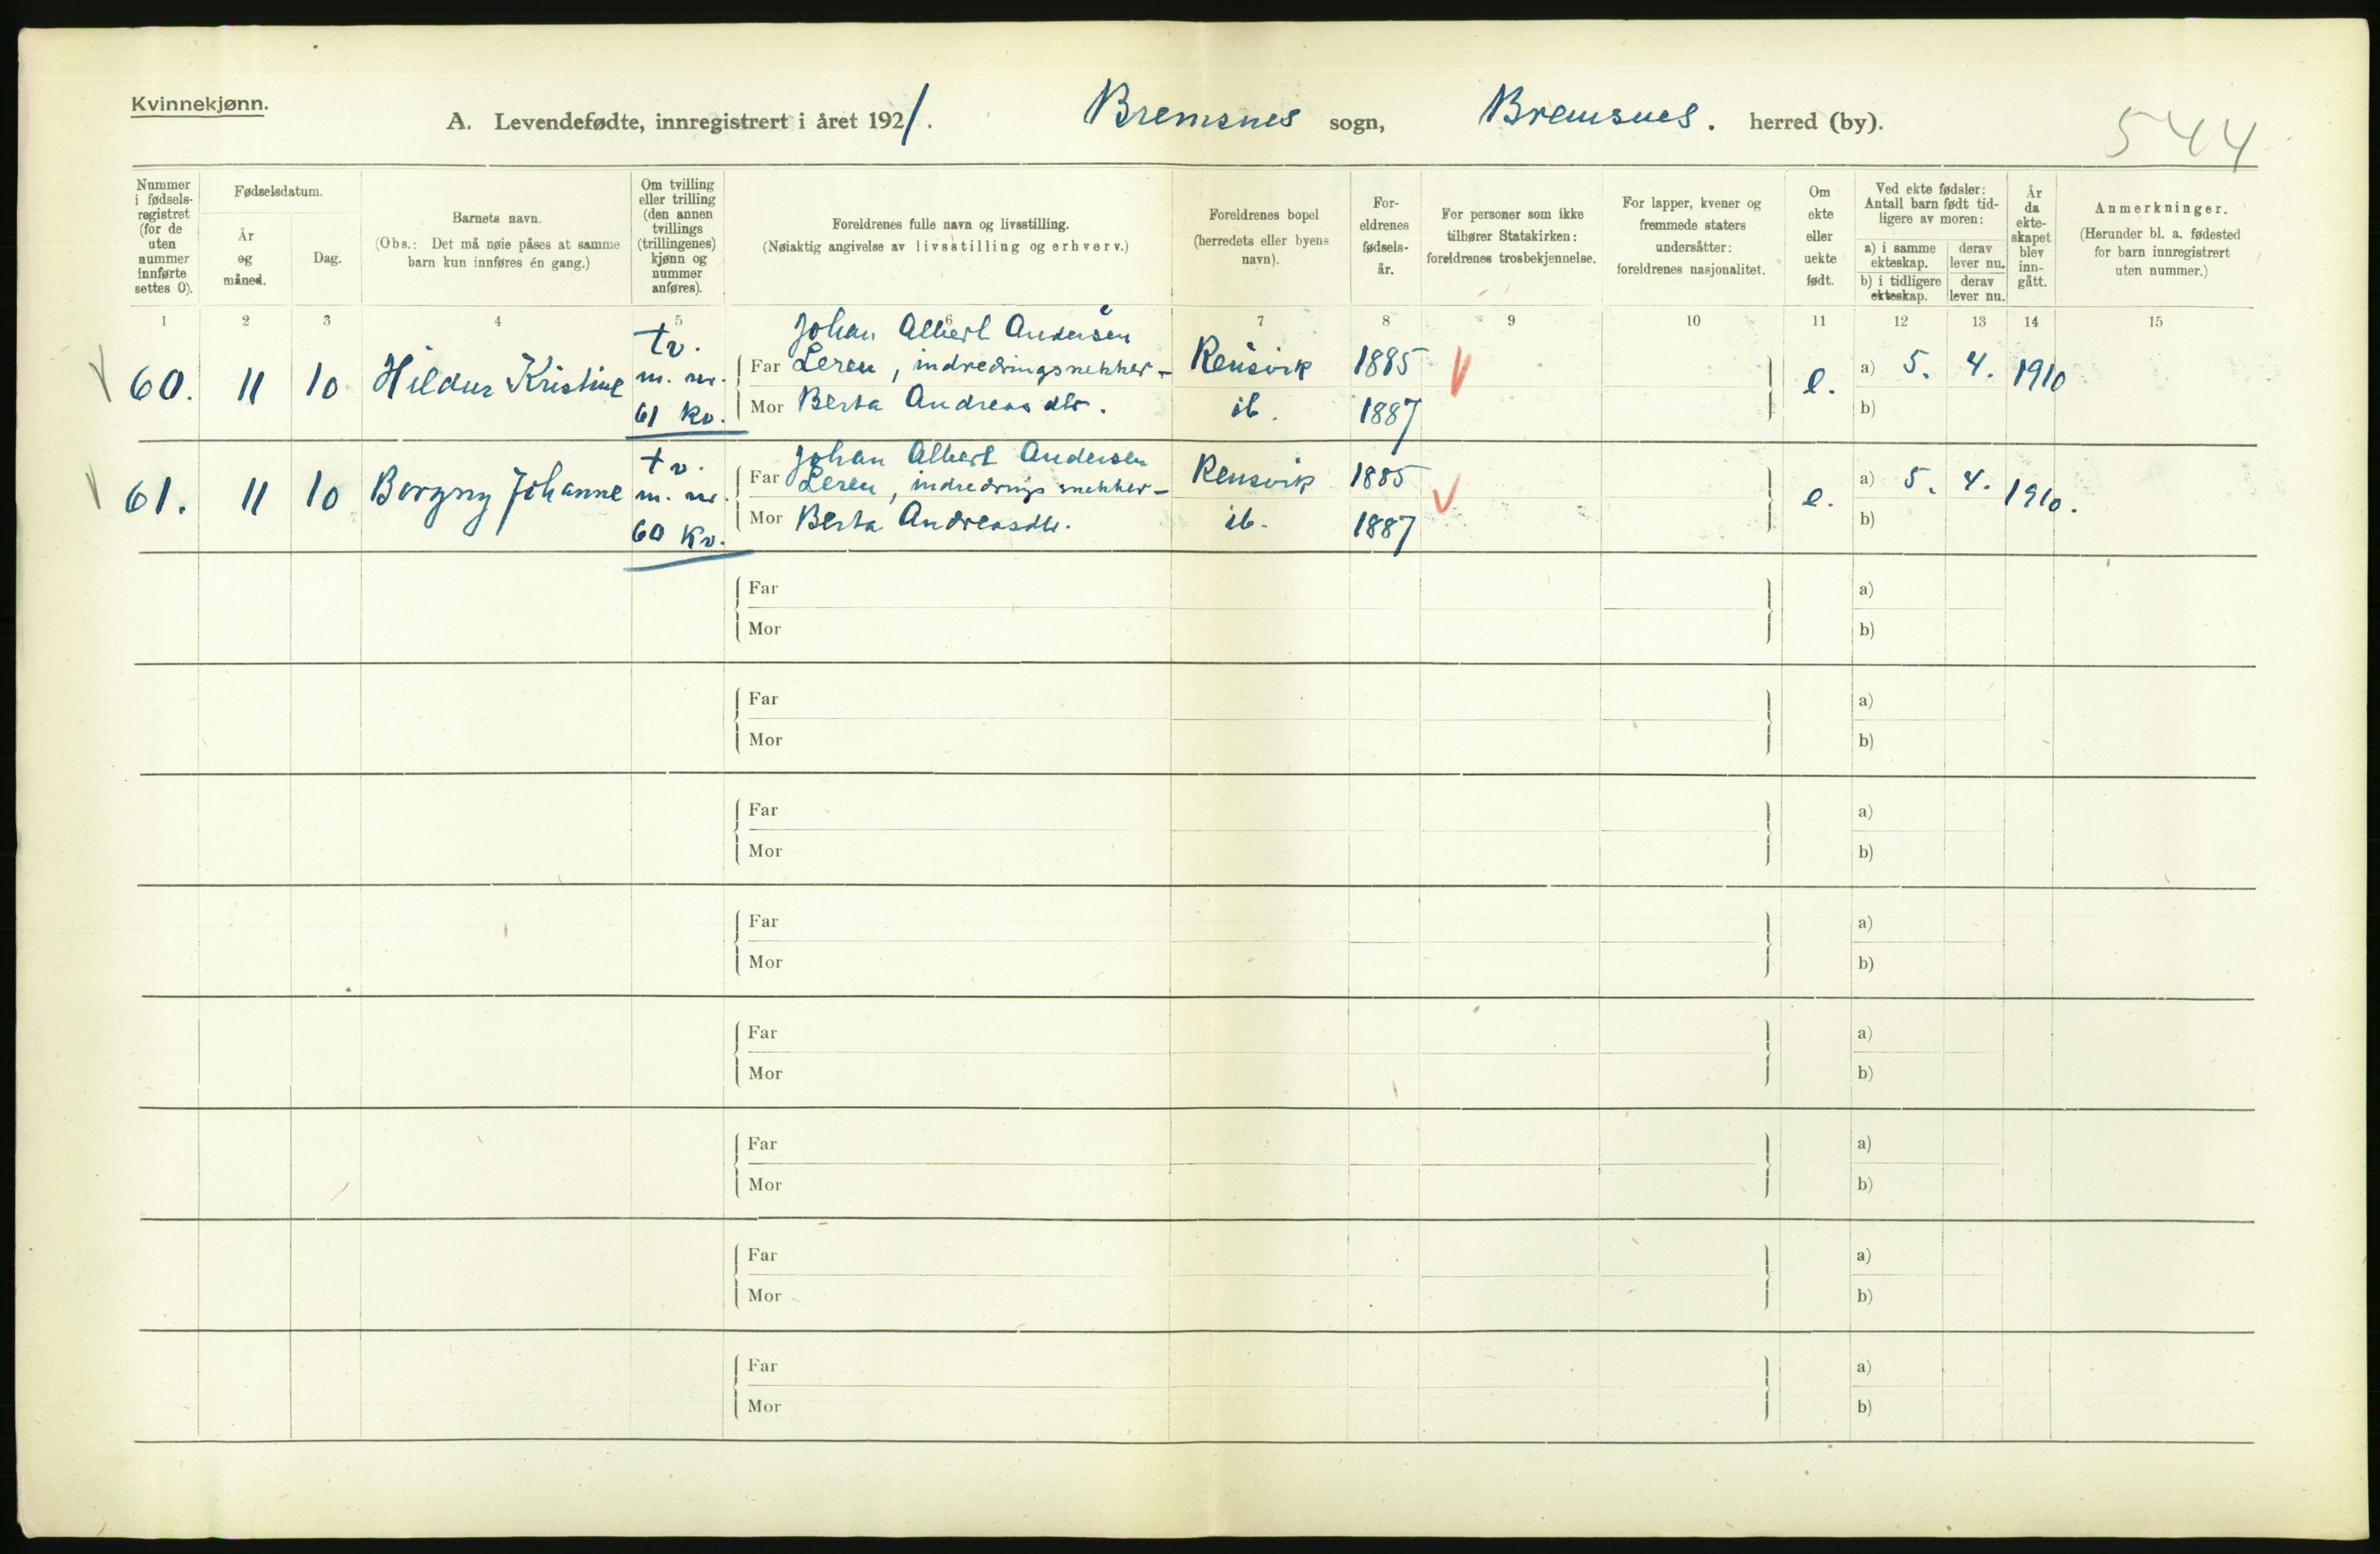 Kvinnekjønn.
A. Levendefødte, innregistrert i året 1921. Bremsnes sogn, Bremsnes. herred (by).
544
Nummer i fødsels-registret (for de uten nummer innførte settes 0).
Fødselsdatum.
År og måned.
Dag.
Barnets navn.
(Obs.: Det må nøie påses at samme barn kun innføres én gang.)
Om tvilling eller trilling (den annen tvillings (trillingenes) kjønn og nummer anføres).
Foreldrenes fulle navn og livsstilling.
(Nøiaktig angivelse av livsstilling og erhverv.)
Foreldrenes bopel (herredets eller byens navn).
For-eldrenes fødsels-år.
For personer som ikke tilhører Statskirken: foreldrenes trosbekjennelse.
For lapper, kvener og fremmede staters undersåtter: foreldrenes nasjonalitet.
Om ekte eller uekte født.
Ved ekte fødsler: Antall barn født tid-ligere av moren:
a) i samme ekteskap.
derav lever nu.
b) i tidligere ekteskap.
derav lever nu.
År da ekte-skapet blev inn-gått.
Anmerkninger.
(Herunder bl. a. fødested for barn innregistrert uten nummer.)
1 2 3 4 5 6 7 8 9 10 11 12 13 14 15
60. 11 10 Hildur Kristine
tv.
m. nr.
61 kv.
Johan Albert Andersen
Far Leren, indredningssnekker - Rensvik 1885
Mor Berta Andreasdtr. ib. 1887
e. a) 5. 4. 1910
b)
61. 11 10 Borgny Johanne
tv.
m. nr.
60 kv.
Johan Albert Andersen
Far Leren, indrednings snekker - Rensvik 1885
Mor Berta Andreasdtr. ib. 1887
e. a) 5. 4. 1910.
b)
Far a)
Mor b)
Far a)
Mor b)
Far a)
Mor b)
Far a)
Mor b)
Far a)
Mor b)
Far a)
Mor b)
Far a)
Mor b)
Far a)
Mor b)